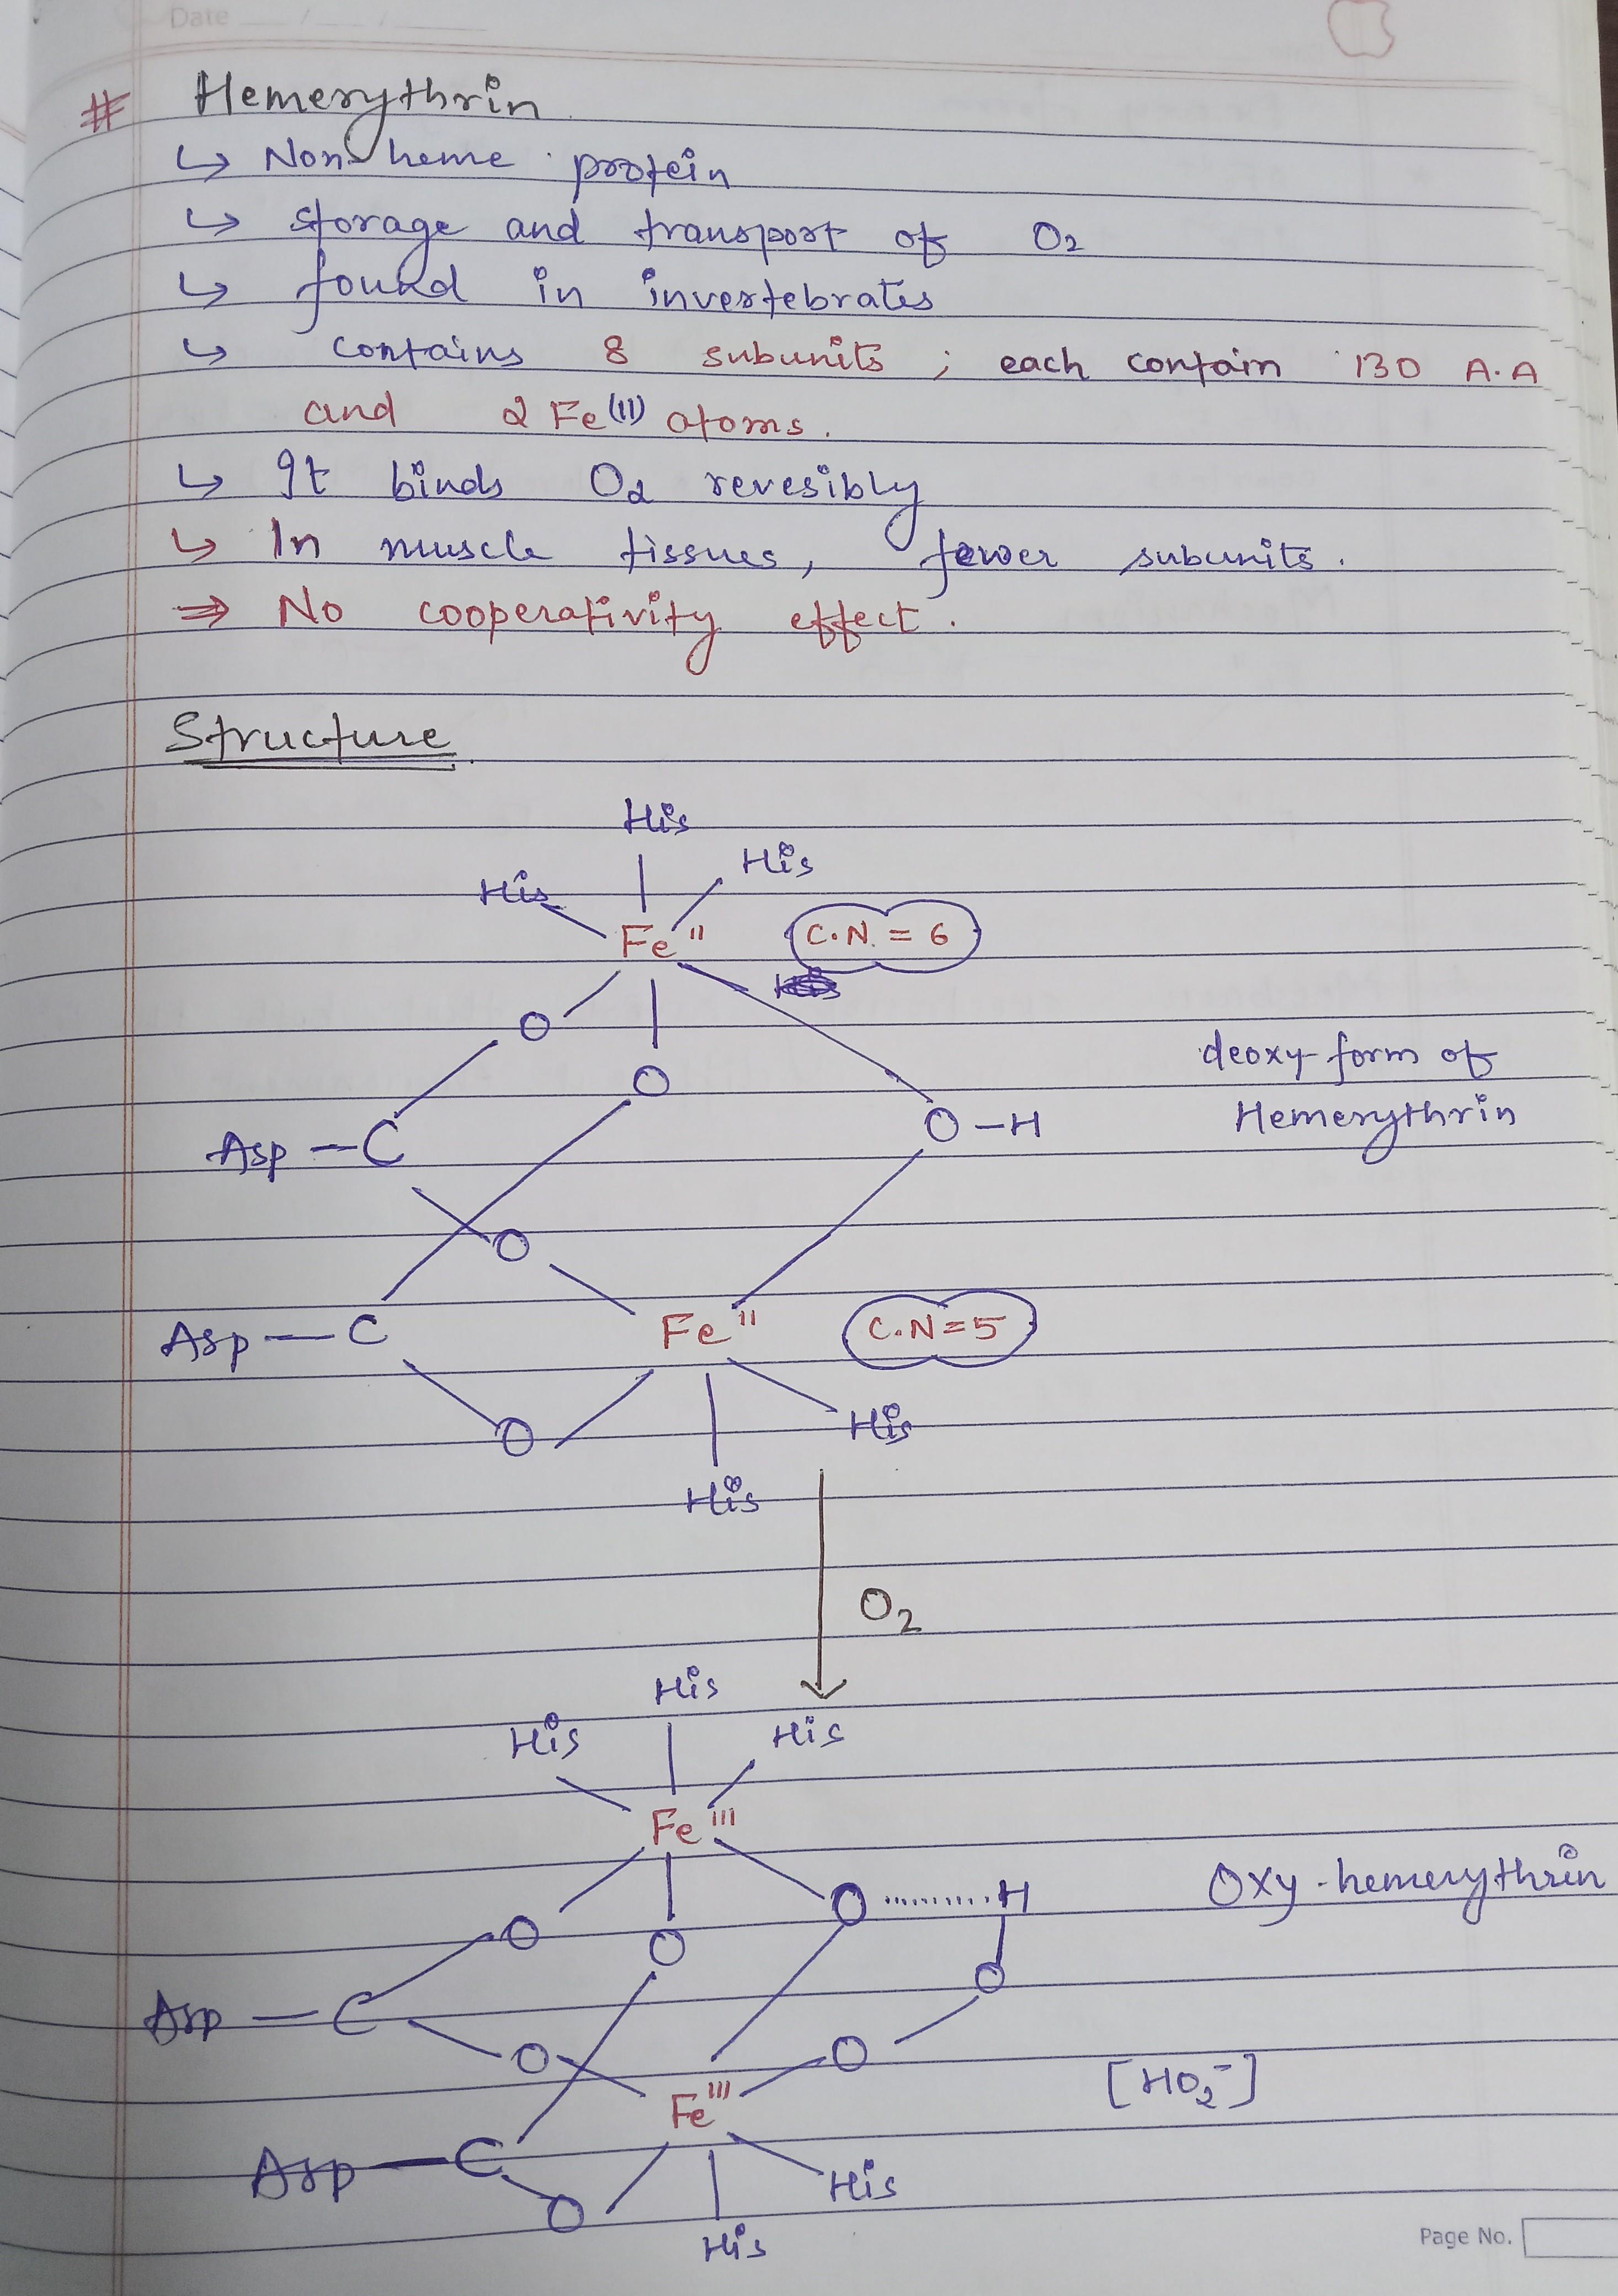 Date __ / __ / ____
# Hemerythrin
↳ Non-heme protein
↳ storage and transport of O₂
↳ found in invertebrates
↳ contains 8 subunits ; each contain 130 A.A
and 2 Fe(II) atoms.
↳ It binds O₂ revesibly
↳ In muscle tissues, fewer subunits.
⇒ No cooperativity effect.
Structure
His
His His
Fe" C.N. = 6
O
O
deoxy-form of
Asp - C O - H Hemerythrin
O
Asp - C Fe" C.N = 5
O His
His
O₂
His
His His
Fe'''
O O O ......... H Oxy-hemerythrin
O
Asp - C
O O
Fe''' [HO₂⁻]
Asp - C
O His
His
Page No.